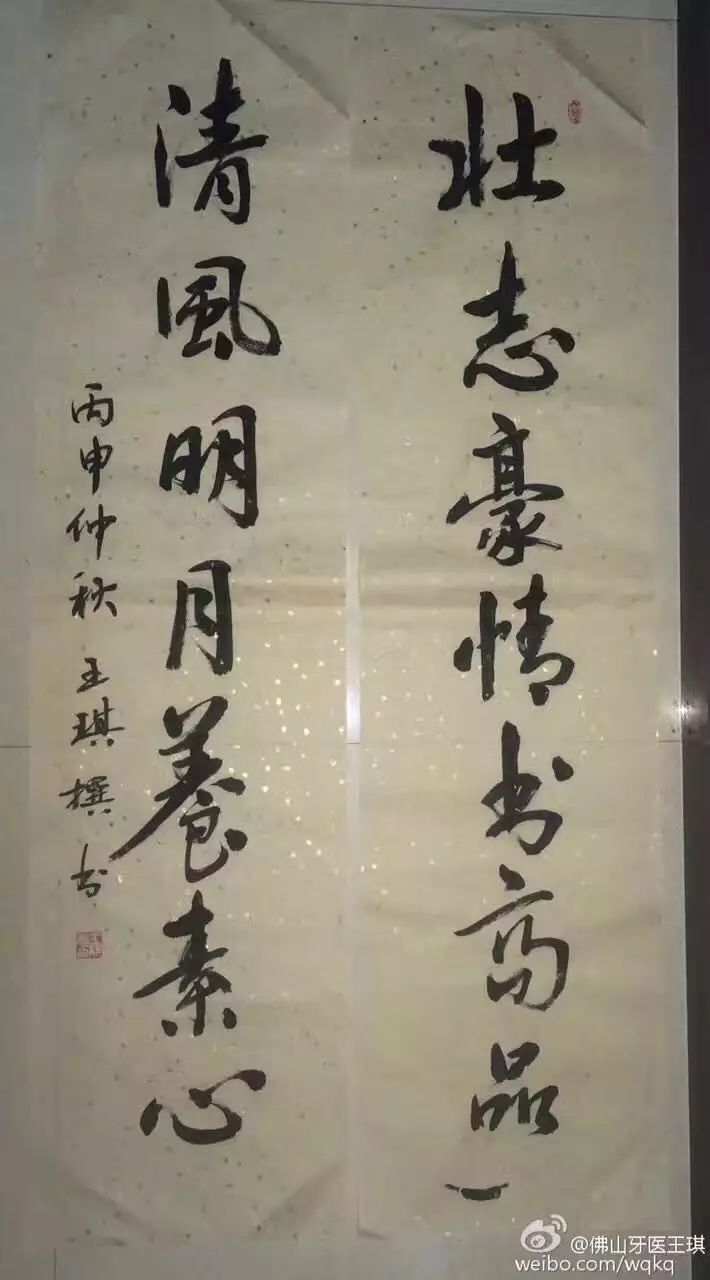 壮志豪情书高品一
清風明月養素心
丙申仲秋 王琪撰书
@佛山牙医王琪
weibo.com/wqkq